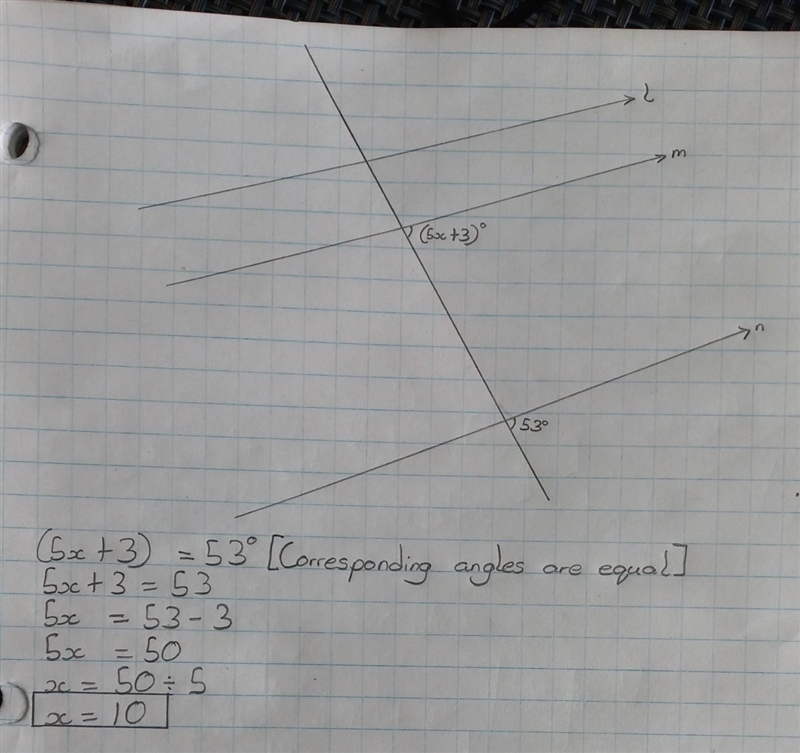 l
m
(5x+3)°
n
53°
(5x+3) = 53° [Corresponding angles are equal]
5x+3 = 53
5x = 53-3
5x = 50
x = 50÷5
x = 10